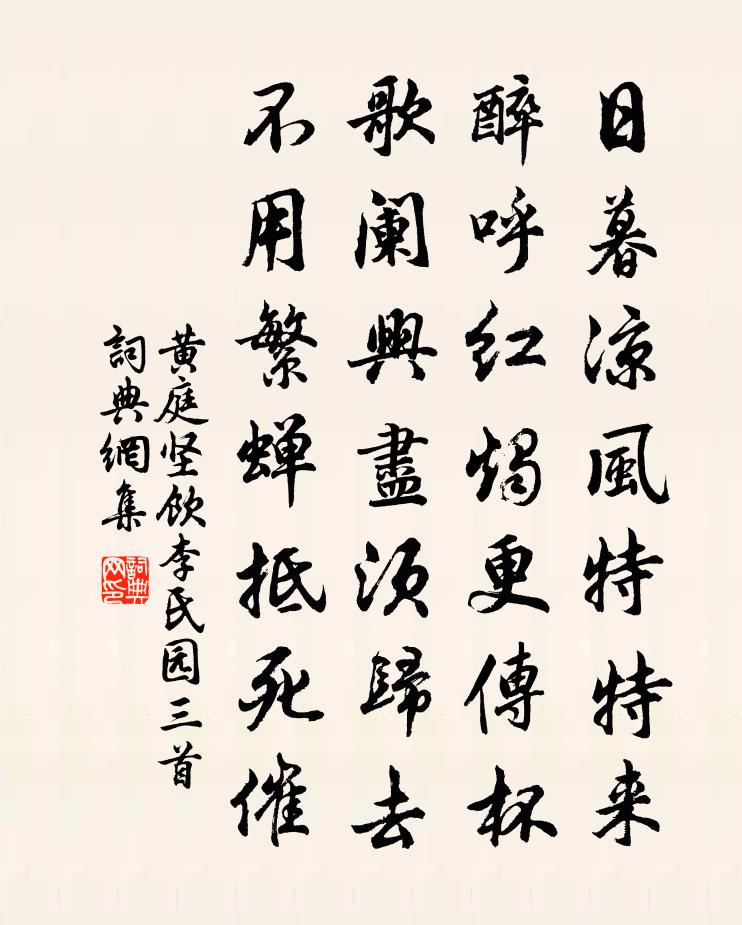 日暮涼風特特来
醉呼紅燭更傳杯
歌闌興盡須歸去
不用繁蝉抵死催
黄庭坚飲李氏园三首
詞典網集
詞典网印